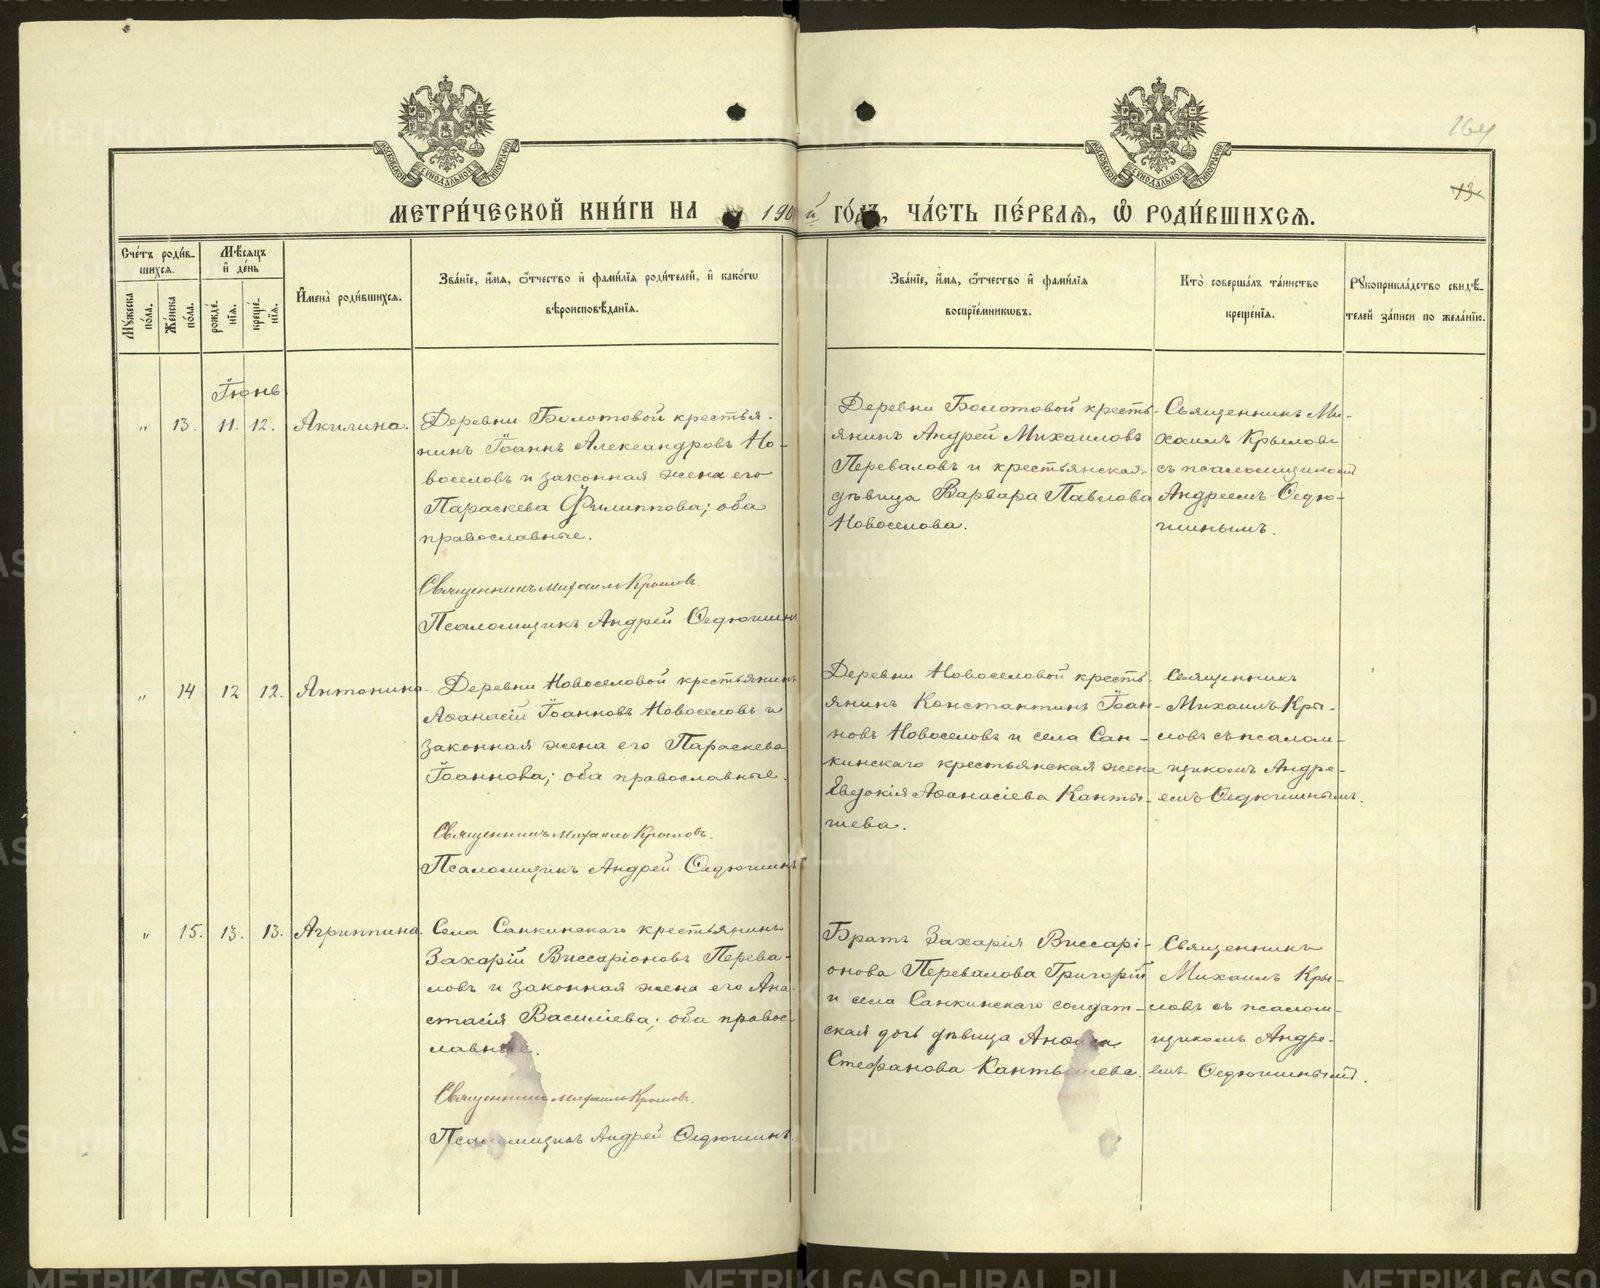 164
13
МЕТРИ́ЧЕСКОЙ КНИ́ГИ НА 190 й ГО́ДЪ, ЧА́СТЬ ПЕ́РВАЯ, Ѽ РОДИ́ВШИХСЯ.
Сче́тъ роди́вшихся.
Мꙋ́жеска по́ла.
Же́нска по́ла.
Мѣ́сяцъ и҆ де́нь
рожде́нїя.
креще́нїя.
И҆мена̀ роди́вшихся.
Зва́нїе, и҆́мя, ѻ҆́тчество и҆ фами́лїя роди́телей, и҆ како́гѡ
вѣроисповѣ́данїя.
Зва́нїе, и҆́мя, ѻ҆́тчество и҆ фами́лїя
воспрїе́мникѡвъ.
Кто̀ соверша́лъ та́инство
креще́нїя.
Рꙋкоприкла́дство свидѣ́-
телей за́писи по жела́нїю.
Іюнь
„ 13. 11. 12. Акилина.
Деревни Болотовой крестья-
нинъ Іоаннъ Александровъ Но-
воселовъ и законная жена его
Параскева Филиппова; оба
православные.
Священникъ Михаилъ Крыловъ.
Псаломщикъ Андрей Ѳедюшинъ
Деревни Болотовой кресть-
янинъ Андрей Михаиловъ
Переваловъ и крестьянская
дѣвица Варвара Павлова
Новоселова.
Священникъ Ми-
хаилъ Крыловъ
съ псаломщикомъ
Андреемъ Ѳедю-
шинымъ.
„ 14 12 12. Антонина.
Деревни Новоселовой крестьянинъ
Аѳанасій Іоанновъ Новоселовъ и
законная жена его Параскева
Іоаннова; оба православные.
Священникъ Михаилъ Крыловъ.
Псаломщикъ Андрей Ѳедюшинъ
Деревни Новоселовой кресть-
янинъ Константинъ Іоан-
новъ Новоселовъ и села Сан-
кинскаго крестьянская жена
Евдокія Аѳанасіева Канты-
шева.
Священникъ
Михаилъ Кры-
ловъ съ псалом-
щикомъ Андре-
емъ Ѳедюшинымъ.
„ 15. 13. 13. Агриппина.
Села Санкинскаго крестьянинъ
Захарій Виссаріоновъ Перева-
ловъ и законная жена его Ана-
стасія Василіева; оба правос-
лавные.
Священникъ Михаилъ Крыловъ.
Псаломщикъ Андрей Ѳедюшинъ.
Братъ Захарія Виссарі-
онова Перевалова Григорій
и села Санкинскаго солдат-
ская дочь дѣвица Анѳиса
Стефанова Кантышева.
Священникъ
Михаилъ Кры-
ловъ съ псалом-
щикомъ Андре-
емъ Ѳедюшинымъ.
METRIKI.GASO-URAL.RU